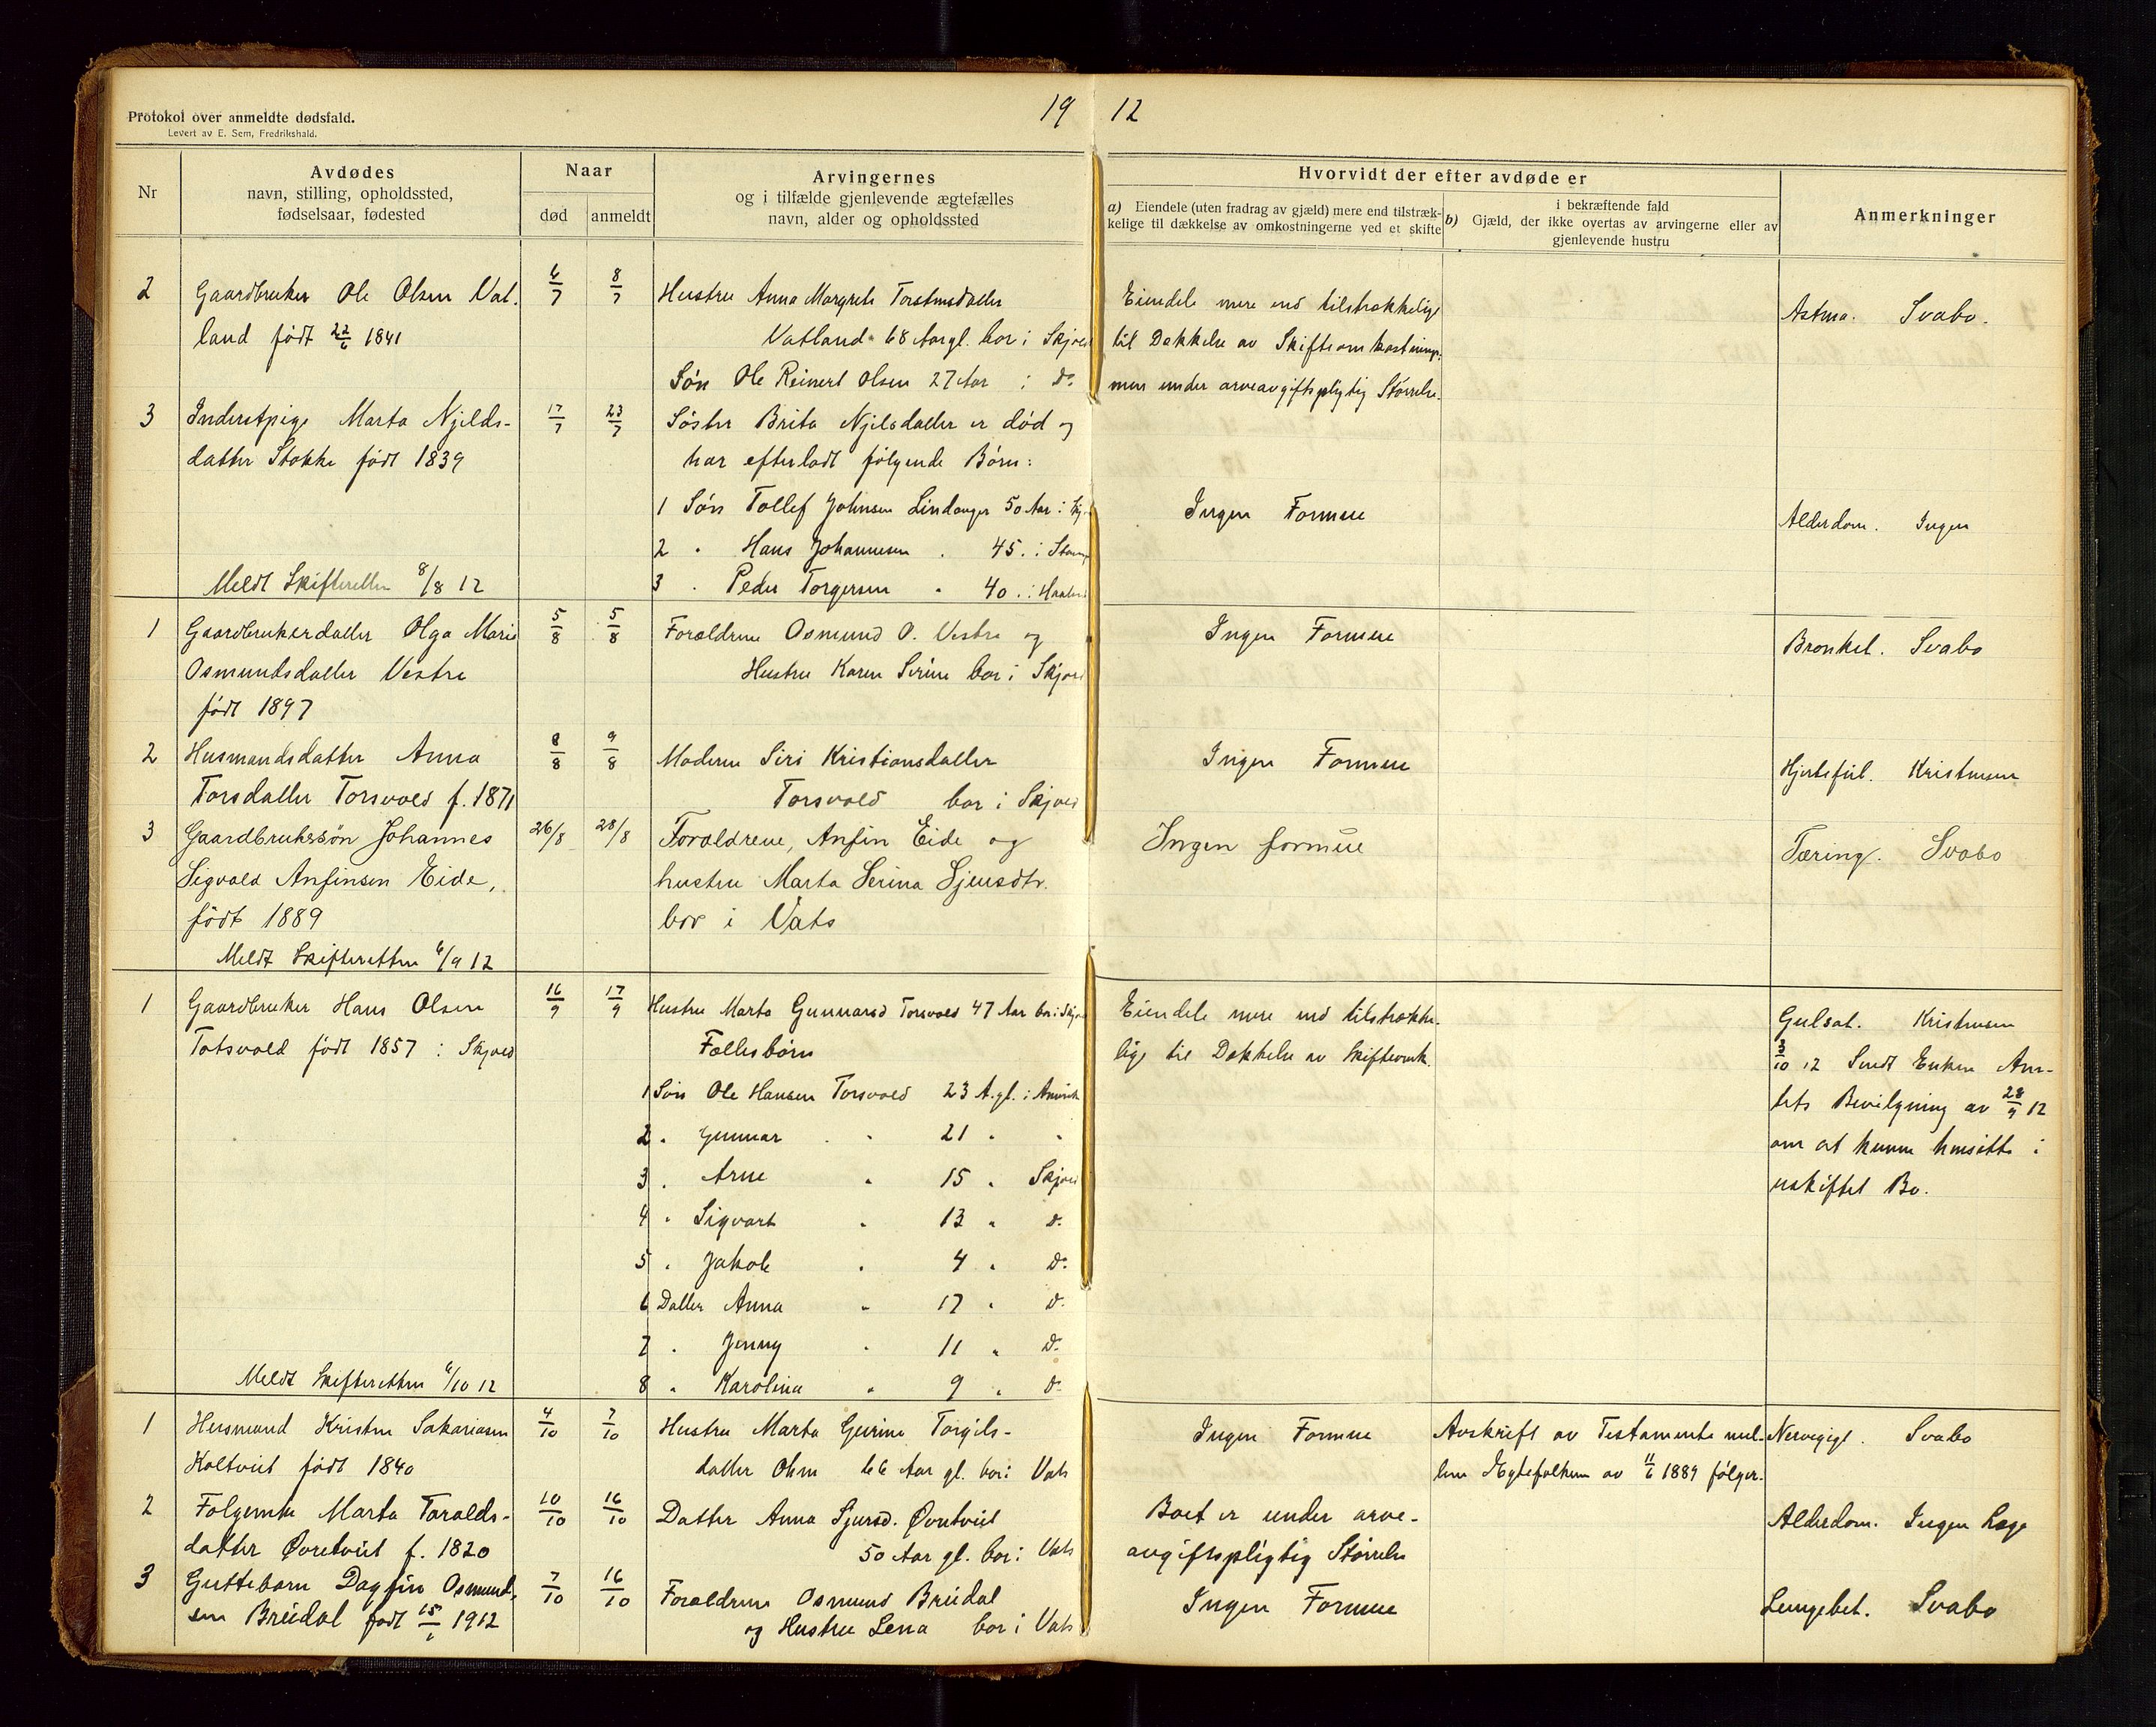 Protokol over anmeldte dødsfald.
Levert av E. Sem, Fredrikshald.
19 12
Nr
Avdødes
navn, stilling, opholdssted,
fødselsaar, fødested
Naar
død anmeldt
Arvingernes
og i tilfælde gjenlevende ægtefælles
navn, alder og opholdssted
Hvorvidt der efter avdøde er
a) Eiendele (uten fradrag av gjæld) mere end tilstræk-
kelige til dækkelse av omkostningerne ved et skifte
i bekræftende fald
b) Gjæld, der ikke overtas av arvingerne eller av
gjenlevende hustru
Anmerkninger
2 Gaardbruker Ole Olsen Vat- 6/7 8/7 Hustru Anna Margrete Torstensdatter Eiendele mere end tilstrækkelige Astma. Svabo.
land født 22/6 1841 Vatland 68 Aar gl. bor i Skjold til Dækkelse av Skifteomkostninger
Søn Ole Reinert Olsen 27 Aar i do men under arveavgiftspligtig Størrelse.
3 Inderstpige Marta Njelds- 17/7 23/7 Søster Brita Njelsdatter er død og
datter Stakke født 1839 har efterladt følgende Børn:
1 Søn Tollef Johnsen Lindanger 50 Aar i Ingen Formue Alderdom. Ingen
2 " Hans Johannesen " 45 " i
3 " Peder Torgersen " 40 " i
Meldt Skifteretten 8/8 12
1 Gaardbrukerdatter Olga Marie 5/8 5/8 Forældrene Osmund O. Vestre og Ingen Formue Bronkit. Svabo
Osmundsdatter Vestre Hustru Karen Serine bor i Skjold
født 1897
2 Husmandsdatter Anna 8/8 9/8 Moderen Siri Kristiansdatter Ingen Formue Hjertefeil. Kristensen
Torsdatter Torsvold f. 1871 Torsvold bor i Skjold
3 Gaardbrukersøn Johannes 26/8 28/8 Forældrene, Anfin Eide og Ingen formue Tæring. Svabo
Sigvald Anfinsen Eide, hustru Marta Serina Sjursdtr.
født 1889 bor i Vats
Meldt Skifteretten 6/9 12
1 Gaardbruker Hans Olsen 16/9 17/9 Hustru Marta Gunnarsd Torsvold 47 Aar bor i Skjold Eiendele mere end tilstrække- Gulsot. Kristensen
Totsvold født 1857 i Skjold Fællesbørn lige til Dækkelse av Skifteomk. 3/10 12 Sendt Enken Am-
1 Søn Ole Hansen Torsvold 23 A. gl. i Amerika tets Bevilgning av 28/9 12
2 " Gunnar " " 21 " " om at kunne hensitte i
3 " Arne " 15 " Skjold uskiftet Bo.
4 " Sigvart " 13 " do
5 " Jakob " 4 " do
6 Datter Anna " 17 " do
7 " Jenny " 11 " do
8 " Karolina " 9 " do
Meldt Skifteretten 6/10 12
1 Husmand Kristen Sakariasen 4/10 7/10 Hustru Marta Gurine Torgils- Ingen Formue Avskrift av Testamente mel- Nervegigt. Svabo
Koltveit født 1840 datter Ohm 66 Aar gl. bor i Vats lem Egtefolkene av 11/6 1889 følger.
2 Folgemke Marta Taralds- 10/10 16/10 Datter Anna Sjursd. Øvretveit Boet er under arve- Alderdom. Ingen Læge
datter Øvretveit f. 1820 50 Aar gl. bor i Vats avgiftspligtig Størrelse
3 Guttebarn Dagfin Osmund- 7/10 16/10 Forældrene Osmund Breidal Ingen Formue Lungebet. Svabo
sen Breidal født 15/6 1912 og Hustru Lena bor i Vats